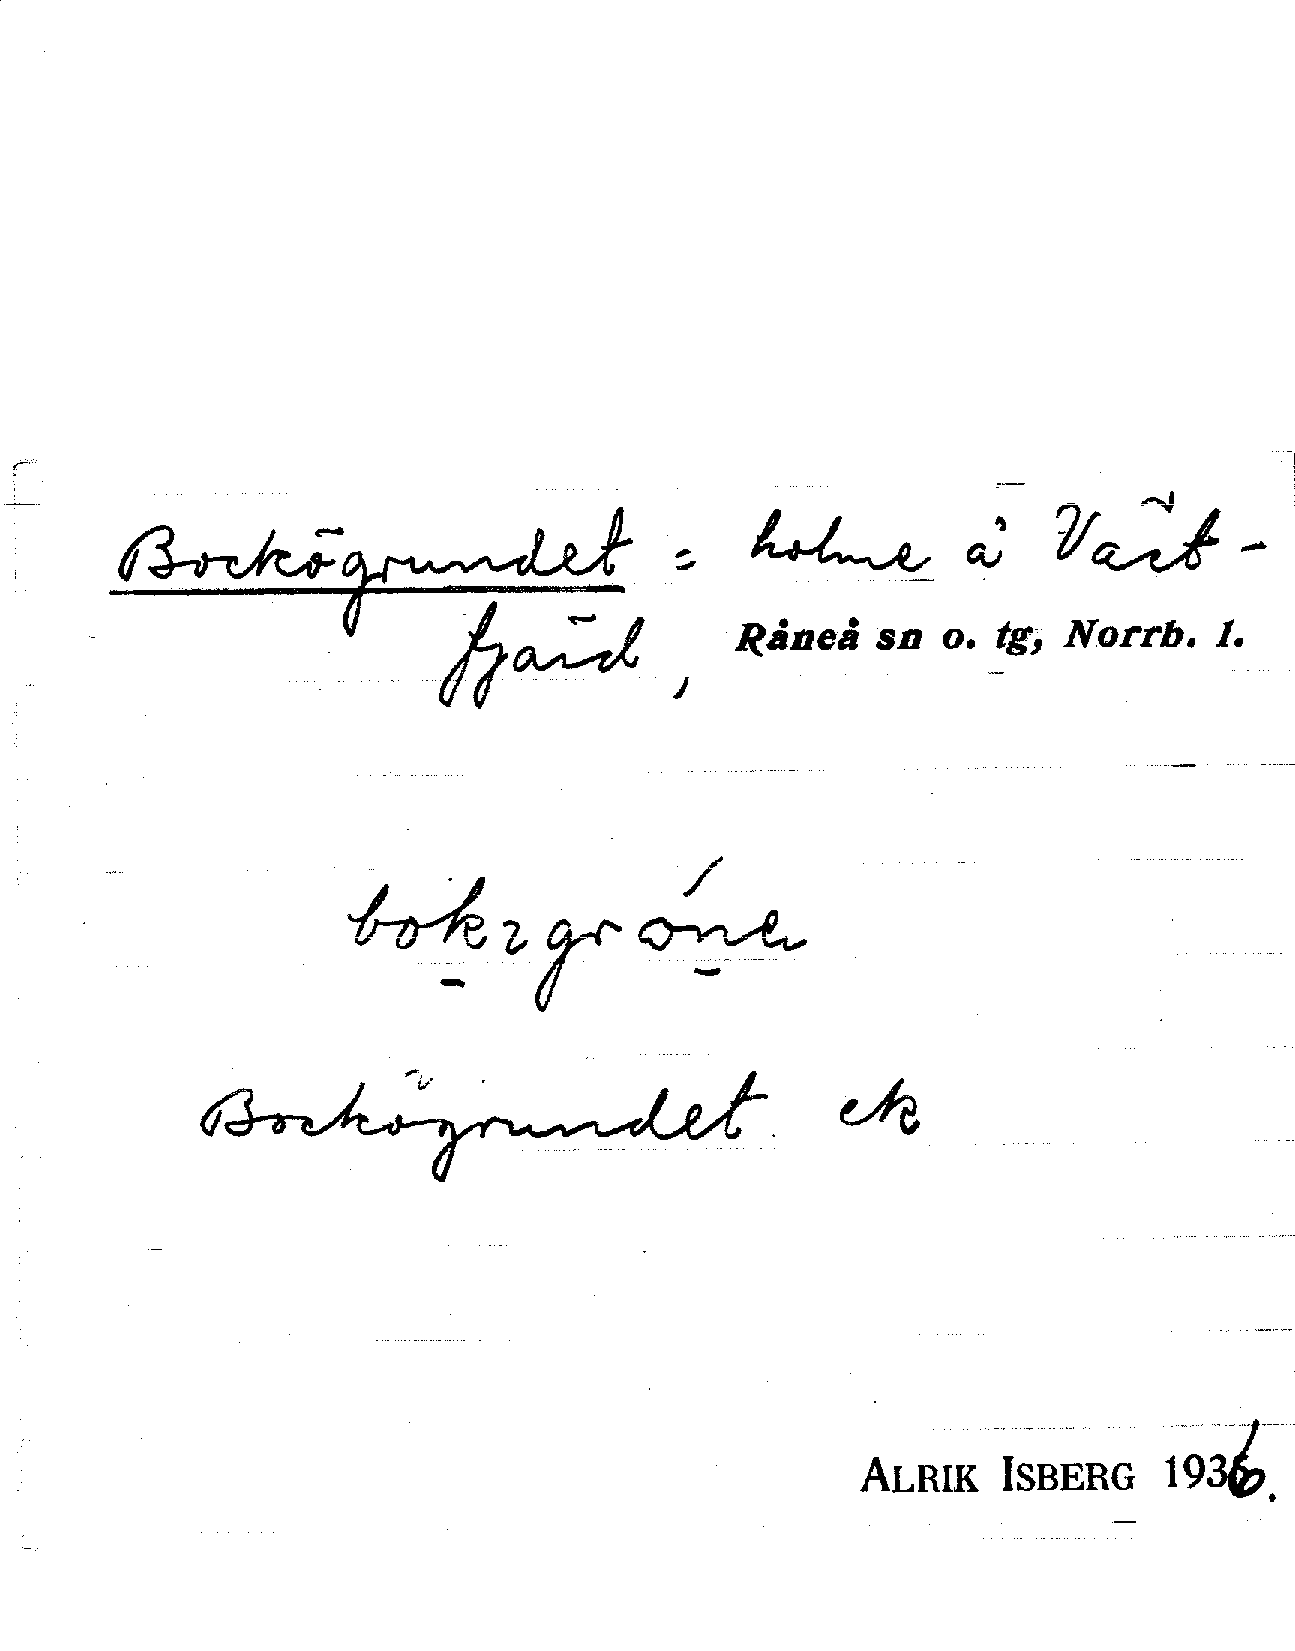 Bockögrundet = holme å Väst-
fjärd, Råneå sn o. tg, Norrb. l.
Bockögrundet ek
ALRIK ISBERG 1936.